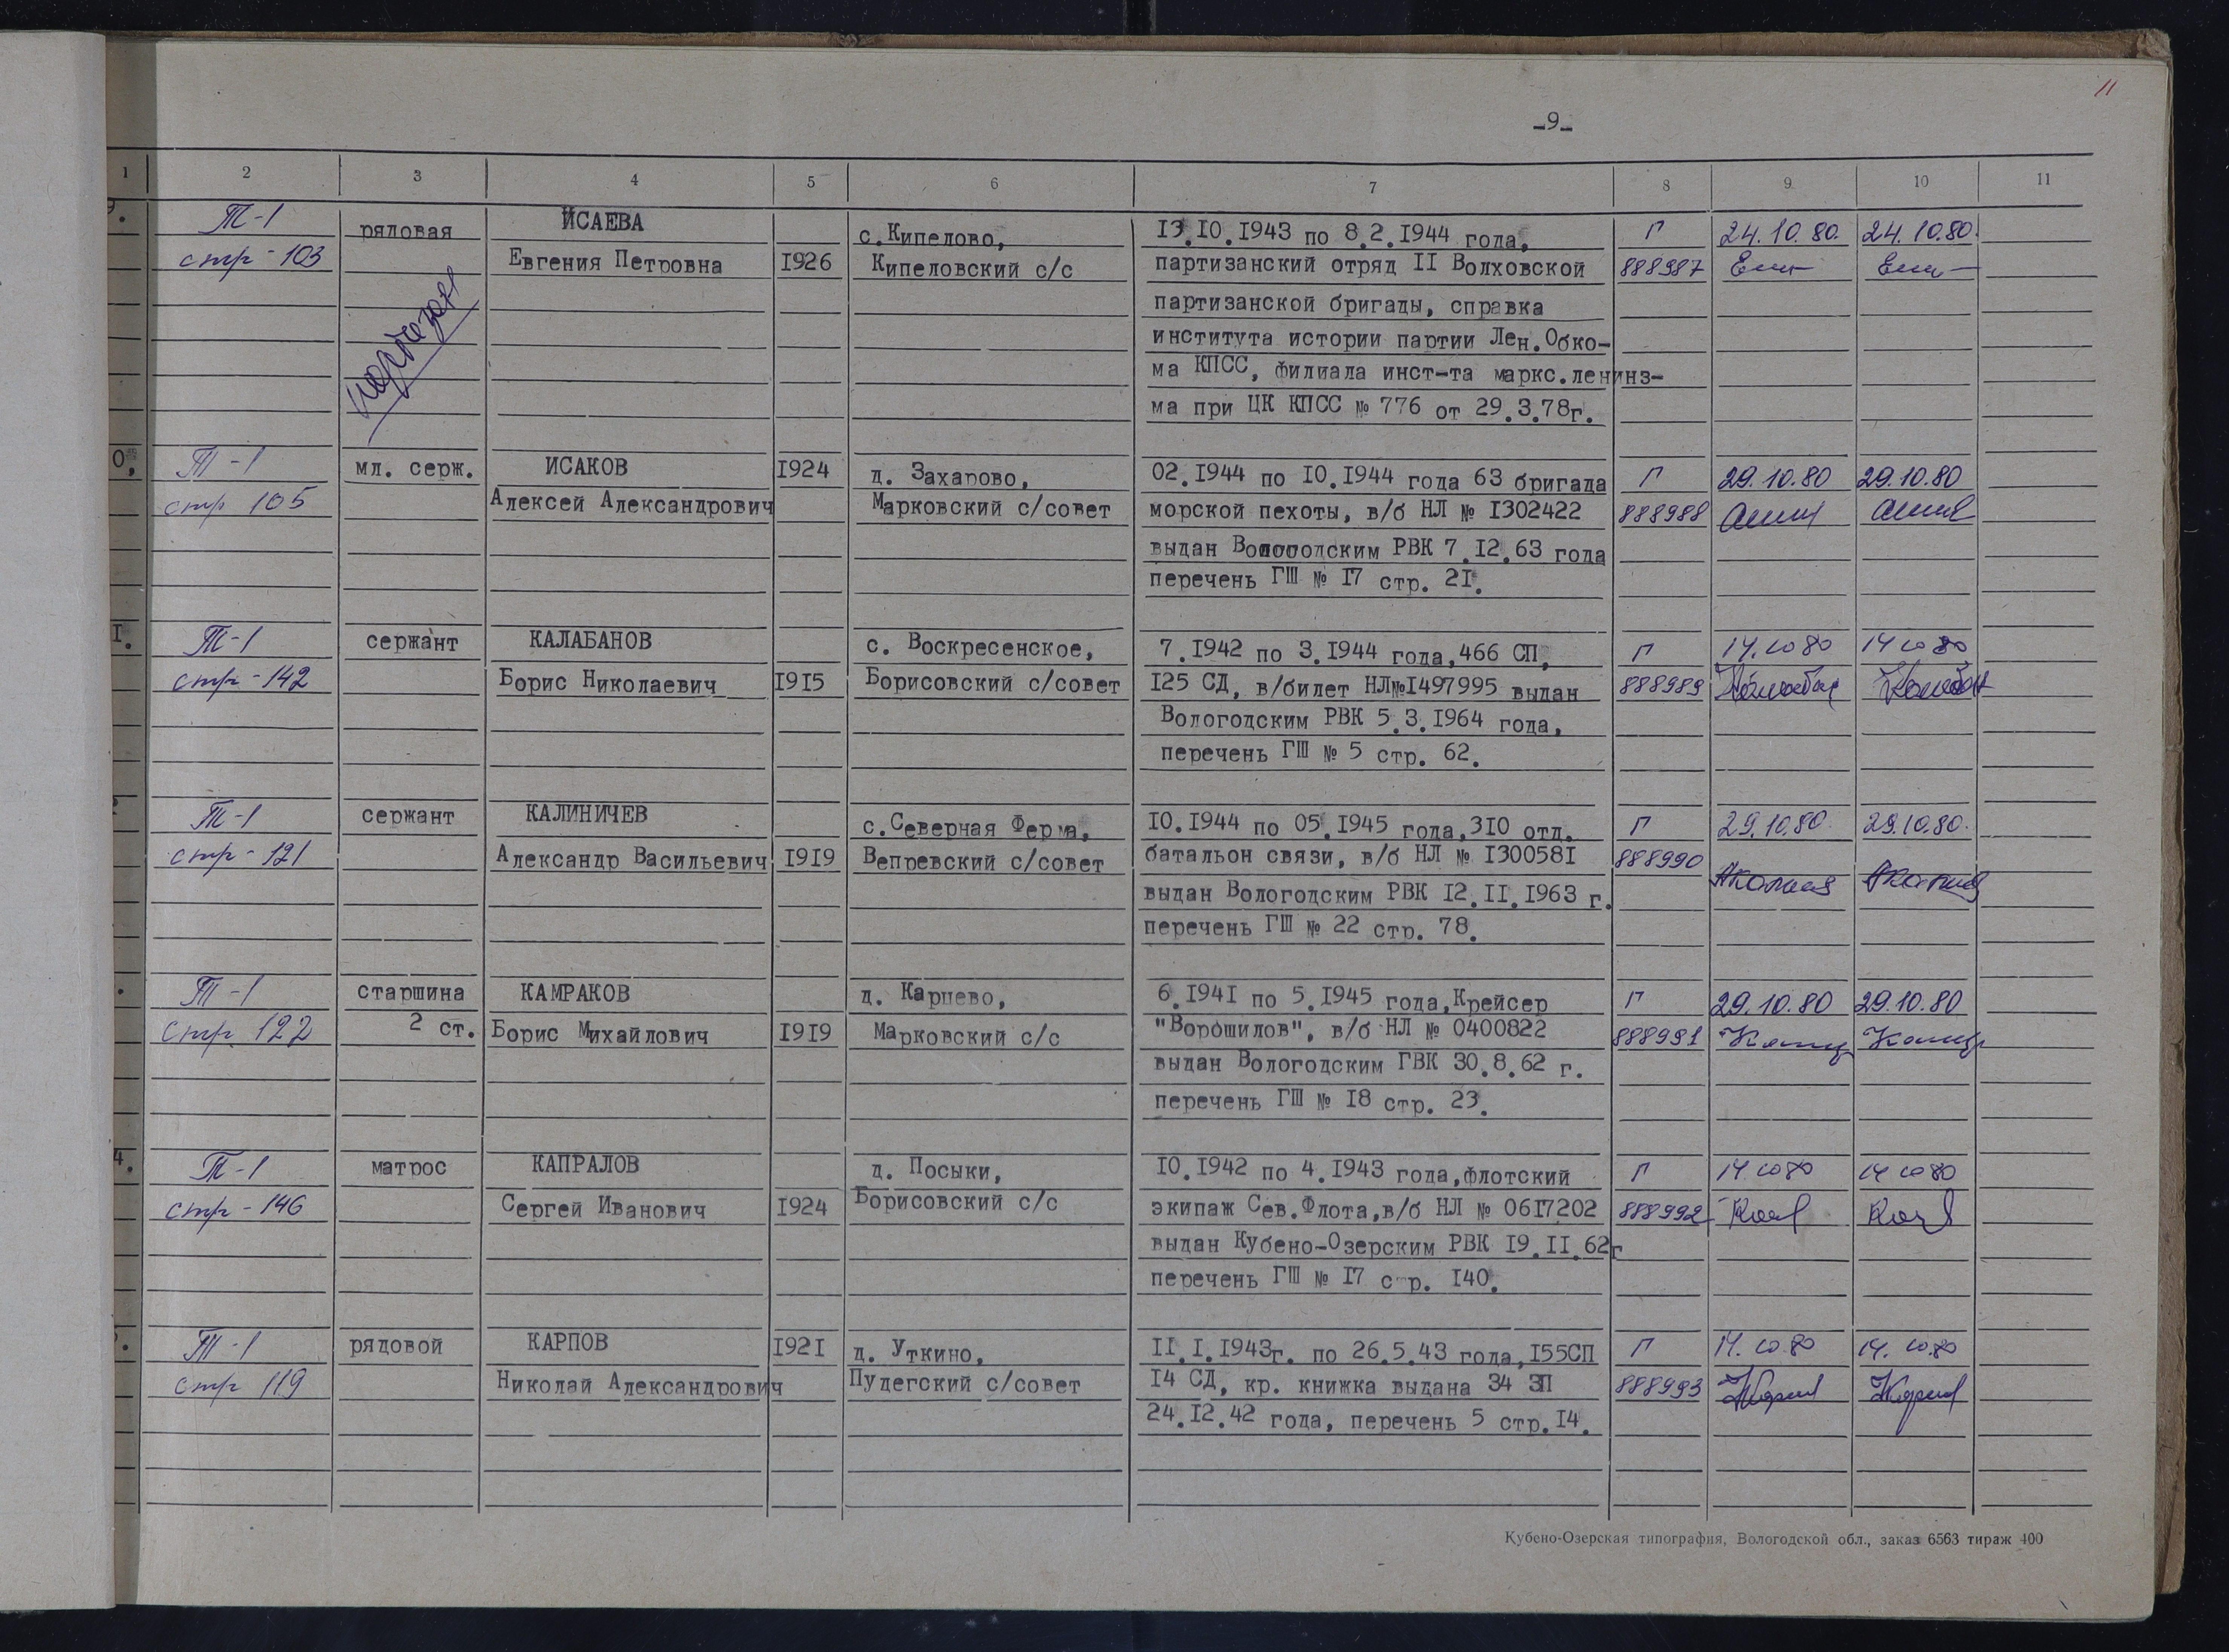 11
-9-
1 2 3 4 5 6 7 8 9 10 11
Т-1 рядовая ИСАЕВА с.Кипелово, 13.10.1943 по 8.2.1944 года, Г 24.10.80. 24.10.80.
стр-103 Евгения Петровна 1926 Кипеловский с/с партизанский отряд II Волховской 888987
партизанской бригады, справка
института истории партии Лен.Обко-
ма КПСС, филиала инст-та маркс.ленинз-
ма при ЦК КПСС № 776 от 29.3.78г.
0, Т-1 мл. серж. ИСАКОВ 1924 д. Захарово, 02.1944 по 10.1944 года 63 бригада Г 29.10.80 29.10.80
стр 105 Алексей Александрович Марковский с/совет морской пехоты, в/б НЛ № 1302422 888988
выдан Вологодским РВК 7.12.63 года
перечень ГШ № 17 стр. 21.
1. Т-1 сержант КАЛАБАНОВ с. Воскресенское, 7.1942 по 3.1944 года,466 СП, Г 14.10 80 14 10 80
стр-142 Борис Николаевич 1915 Борисовский с/совет 125 СД, в/билет НЛ№1497995 выдан 888989
Вологодским РВК 5.3.1964 года,
перечень ГШ № 5 стр. 62.
Т-1 сержант КАЛИНИЧЕВ с.Северная Ферма, 10.1944 по 05.1945 года,310 отд. Г 29.10.80. 29.10.80.
стр-121 Александр Васильевич 1919 Вепревский с/совет батальон связи, в/б НЛ № 1300581 888990
выдан Вологодским РВК 12.11.1963 г.
перечень ГШ № 22 стр. 78.
Т-1 старшина КАМРАКОВ д. Карцево, 6.1941 по 5.1945 года,Крейсер Г 29.10.80 29.10.80
стр. 122 2 ст. Борис Михайлович 1919 Марковский с/с "Ворошилов", в/б НЛ № 0400822 888991
выдан Вологодским ГВК 30.8.62 г.
перечень ГШ № 18 стр. 23.
4. Т-1 матрос КАПРАЛОВ д. Посыки, 10.1942 по 4.1943 года,флотский Г 14 10 80 14 10 80
стр-146 Сергей Иванович 1924 Борисовский с/с экипаж Сев.Флота,в/б НЛ № 0617202 888992
выдан Кубено-Озерским РВК 19.11.62г
перечень ГШ № 17 стр. 140.
Т-1 рядовой КАРПОВ 1921 д. Уткино, 11.1.1943г. по 26.5.43 года,155СП Г 14.10.80 14.10.80
стр 119 Николай Александрович Пудегский с/совет 14 СД, кр. книжка выдана 34 ЗП 888993
24.12.42 года, перечень 5 стр.14.
Кубено-Озерская типография, Вологодской обл., заказ 6563 тираж 400